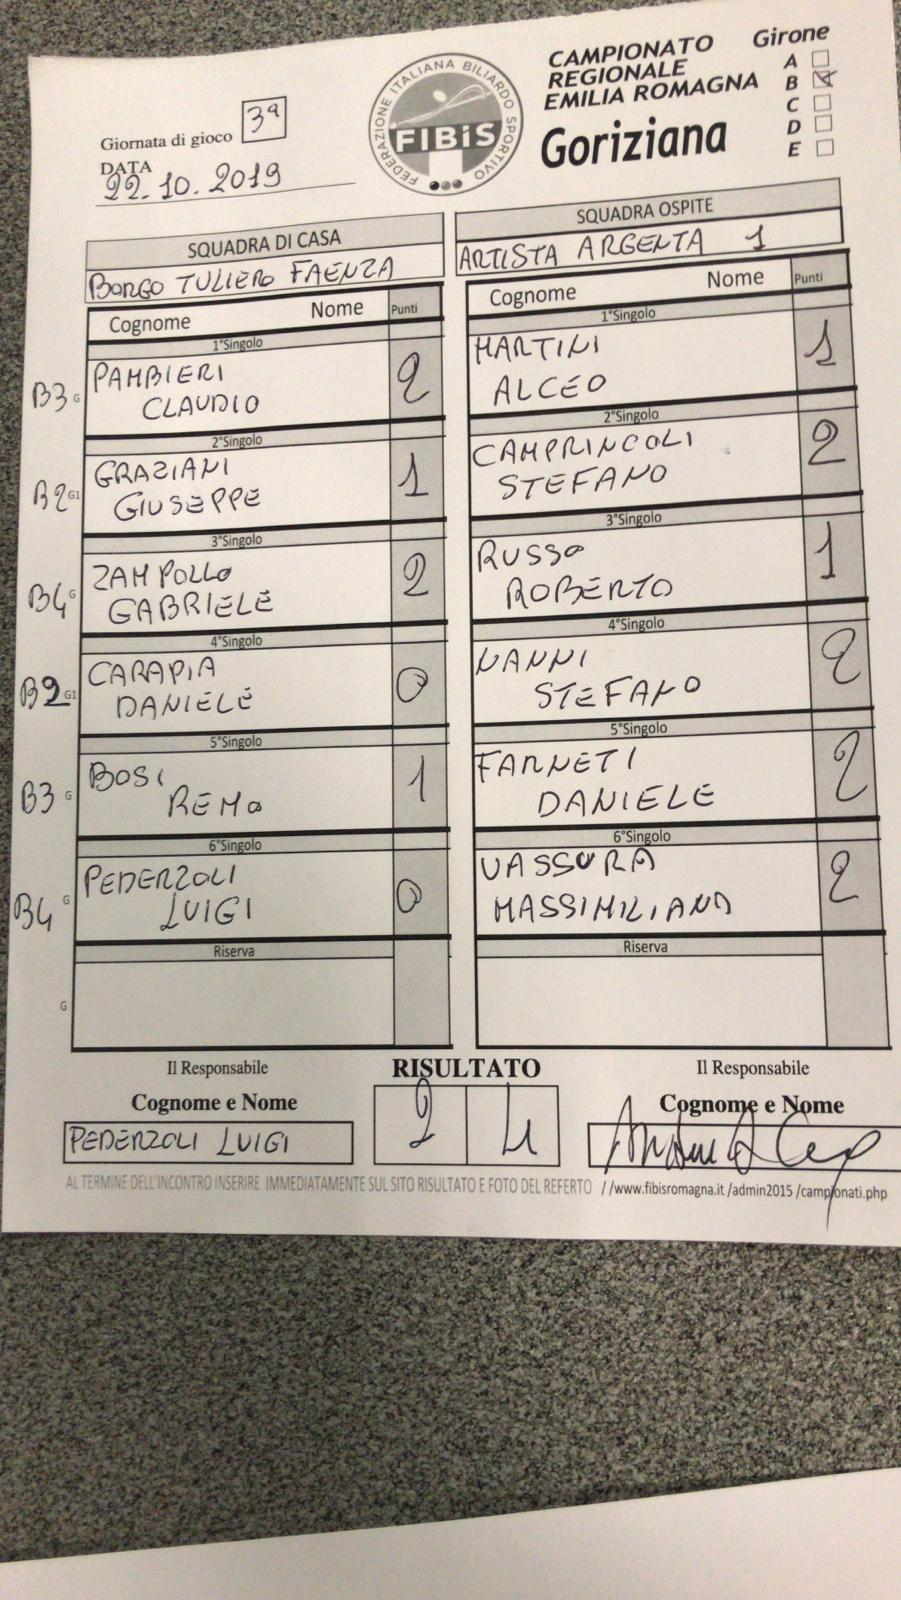 Giornata di gioco 3ª
DATA
22.10.2019
FEDERAZIONE ITALIANA BILIARDO SPORTIVO
FIBiS
CAMPIONATO
REGIONALE
EMILIA ROMAGNA
Goriziana
Girone
A
B
C
D
E
SQUADRA DI CASA
BORGO TULIERO FAENZA
Cognome Nome Punti
1°Singolo
B3 G PAMBIERI
CLAUDIO 2
2°Singolo
B2 G1 GRAZIANI
GIUSEPPE 1
3°Singolo
B4 G ZAMPOLLO
GABRIELE 2
4°Singolo
B2 G1 CARAPIA
DANIELE 0
5°Singolo
B3 G BOSI
REMO 1
6°Singolo
B4 G PEDERZOLI
LUIGI 0
Riserva
G
SQUADRA OSPITE
ARTISTA ARGENTA 1
Cognome Nome Punti
1°Singolo
MARTINI
ALCEO 1
2°Singolo
CAMPRINCOLI
STEFANO 2
3°Singolo
RUSSO
ROBERTO 1
4°Singolo
NANNI
STEFANO 2
5°Singolo
FARNETI
DANIELE 2
6°Singolo
VASSURA
MASSIMILIANO 2
Riserva
Il Responsabile
Cognome e Nome
PEDERZOLI LUIGI
RISULTATO
2 4
Il Responsabile
Cognome e Nome
AL TERMINE DELL'INCONTRO INSERIRE IMMEDIATAMENTE SUL SITO RISULTATO E FOTO DEL REFERTO //www.fibisromagna.it /admin2015 /campionati.php